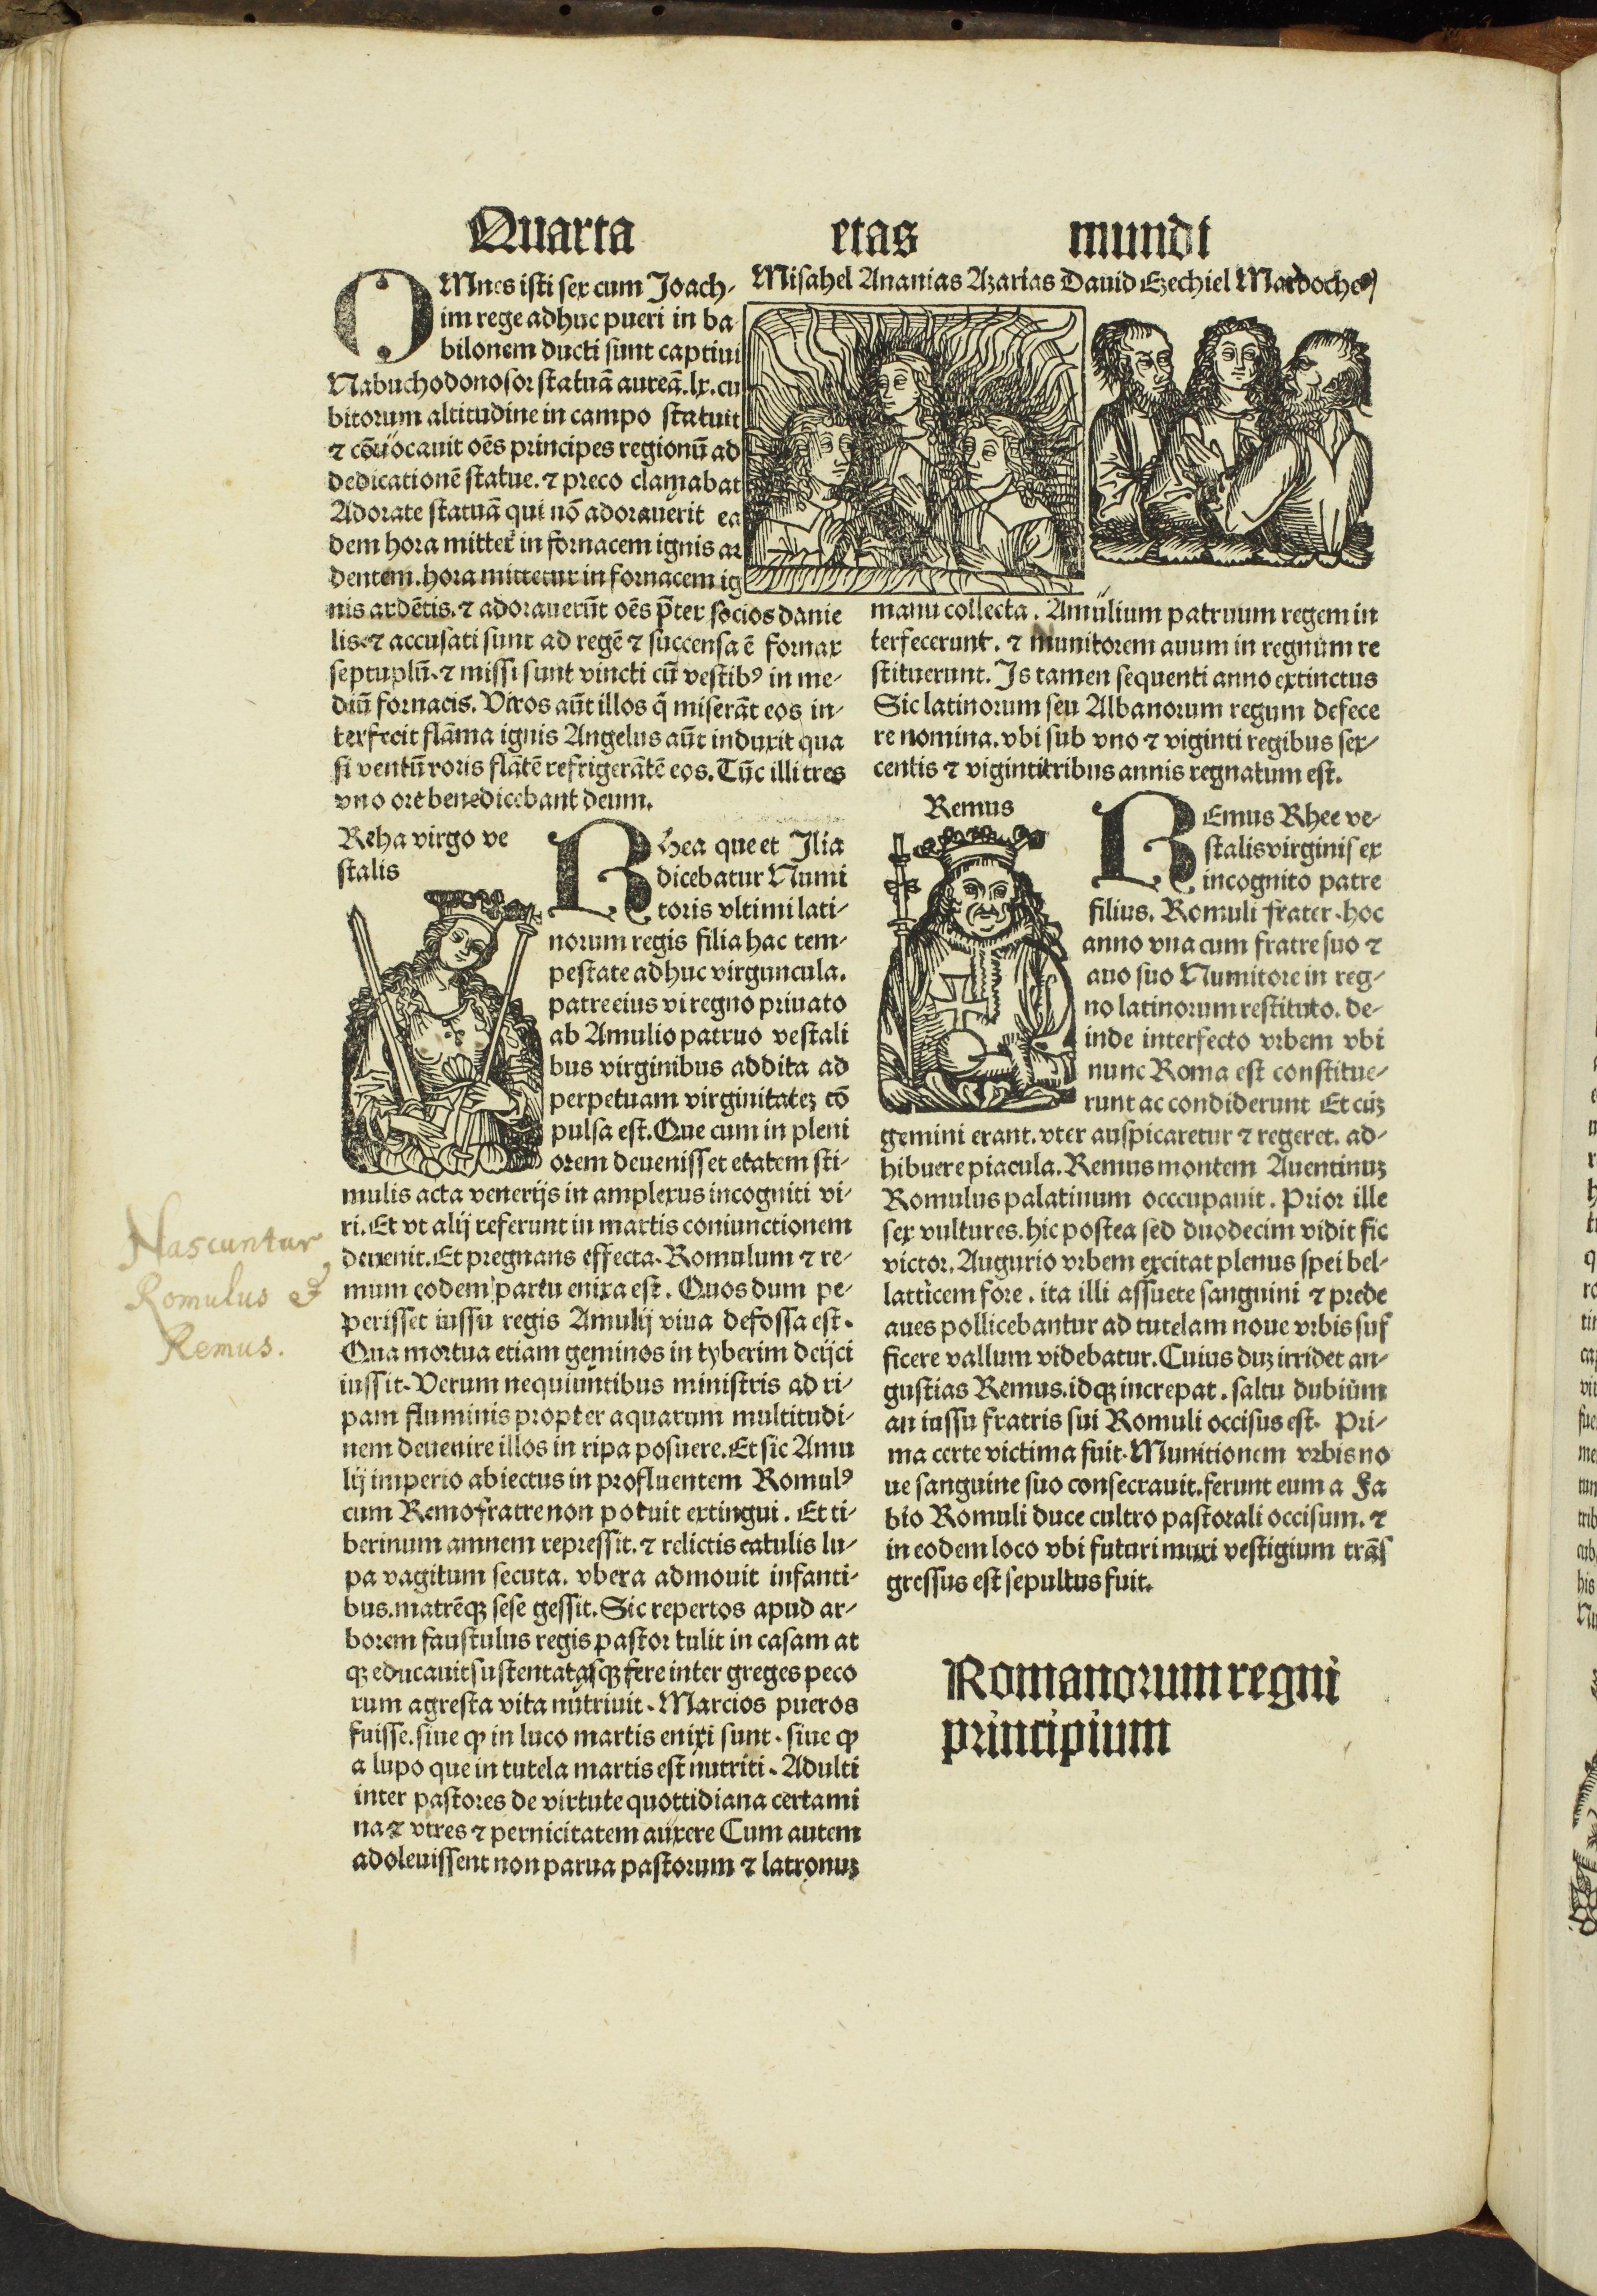 Quarta etas mundi
OMnes isti sex cum Joach-
im rege adhuc pueri in ba
bilonem ducti sunt captiui
Nabuchodonosor statuā aureā. lx. cu
bitorum altitudine in campo statuit
⁊ cōuocauit oēs principes regionū ad
dedicationē statue. ⁊ preco clamabat
Adorate statuā qui nō adorauerit ea
dem hora mittet᷑ in fornacem ignis ar
dentem. hora mittetur in fornacem ig
nis ardētis. ⁊ adorauerūt oēs p̄ter socios danie
lis. ⁊ accusati sunt ad regē ⁊ succensa ē fornax
septuplū. ⁊ missi sunt vincti cū vestibꝰ in me-
diū fornacis. Viros aūt illos q̄ miserāt eos in-
terfecit flāma ignis Angelus aūt induxit qua
si ventū roris flātē refrigerātē eos. Tūc illi tres
vno ore benedicebant deum.
Misahel Ananias Azarias Dauid Ezechiel Mardocheꝰ
Reha virgo ve
stalis
RHea que et Ilia
dicebatur Numi
toris vltimi lati-
norum regis filia hac tem-
pestate adhuc virguncula.
patre eius vi regno priuato
ab Amulio patruo vestali
bus virginibus addita ad
perpetuam virginitateꝫ cō
pulsa est. Que cum in pleni
orem deuenisset etatem sti-
mulis acta venerijs in amplexus incogniti vi-
ri. Et vt alij referunt in martis coniunctionem
deuenit. Et pregnans effecta. Romulum ⁊ re-
mum eodem partu enixa est. Quos dum pe-
perisset iussu regis Amulij viua defossa est.
Qua mortua etiam geminos in tyberim deijci
iussit. Verum nequiuntibus ministris ad ri-
pam fluminis propter aquarum multitudi-
nem deuenire illos in ripa posuere. Et sic Amu
lij imperio abiectus in profluentem Romulꝰ
cum Remo fratre non potuit extingui. Et ti-
berinum amnem repressit. ⁊ relictis catulis lu-
pa vagitum secuta. vbera admouit infanti-
bus. matrēqꝫ sese gessit. Sic repertos apud ar-
borem faustulus regis pastor tulit in casam at
qꝫ educauit sustentatasqꝫ fere inter greges peco
rum agresta vita nutriuit. Marcios pueros
fuisse. siue ꝙ in luco martis enixi sunt. siue ꝙ
a lupo que in tutela martis est nutriti. Adulti
inter pastores de virtute quottidiana certami
na ⁊ vires ⁊ pernicitatem auxere Cum autem
adoleuissent non parua pastorum ⁊ latronuꝫ
Nascuntur
Romulus &
Remus.
manu collecta. Amulium patruum regem in
terfecerunt. ⁊ Munitorem auum in regnum re
stituerunt. Is tamen sequenti anno extinctus
Sic latinorum seu Albanorum regum defece
re nomina. vbi sub vno ⁊ viginti regibus sex-
centis ⁊ vigintitribus annis regnatum est.
Remus
REmus Rhee ve-
stalis virginis ex
incognito patre
filius. Romuli frater. hoc
anno vna cum fratre suo ⁊
auo suo Numitore in reg-
no latinorum restituto. de-
inde interfecto vrbem vbi
nunc Roma est constitue-
runt ac condiderunt Et cūꝫ
gemini erant. vter auspicaretur ⁊ regeret. ad-
hibuere piacula. Remus montem Auentinuꝫ
Romulus palatinum occcupauit. Prior ille
sex vultures. hic postea sed duodecim vidit sic
victor. Augurio vrbem excitat plenus spei bel-
latricem fore. ita illi assuete sanguini ⁊ prede
aues pollicebantur ad tutelam noue vrbis suf
ficere vallum videbatur. Cuius duꝫ irridet an-
gustias Remus. idqꝫ increpat. saltu dubium
an iussu fratris sui Romuli occisus est. Pri-
ma certe victima fuit. Munitionem vrbis no
ue sanguine suo consecrauit. ferunt eum a Fa
bio Romuli duce cultro pastorali occisum. ⁊
in eodem loco vbi futuri muri vestigium trāſ
gressus est sepultus fuit.
Romanorum regni
principium